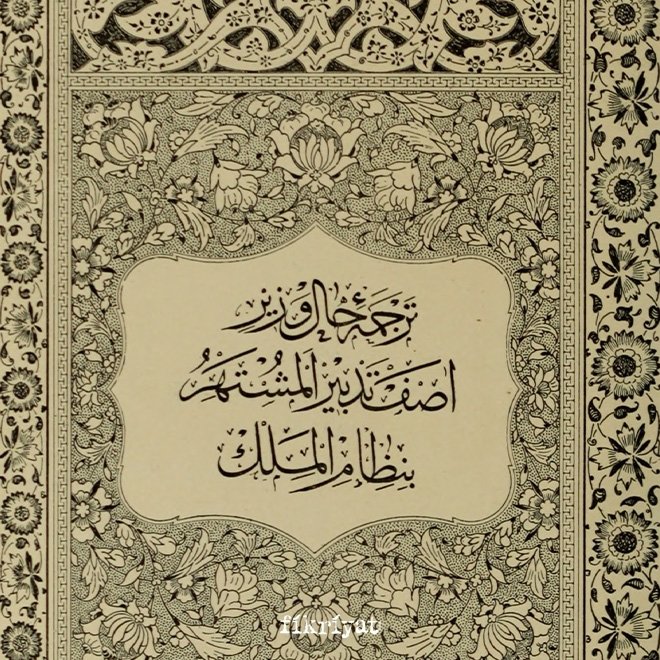 ترجمهٔ حال وزير
اصف تدبير المشتهر
بنظام الملك
fikriyat